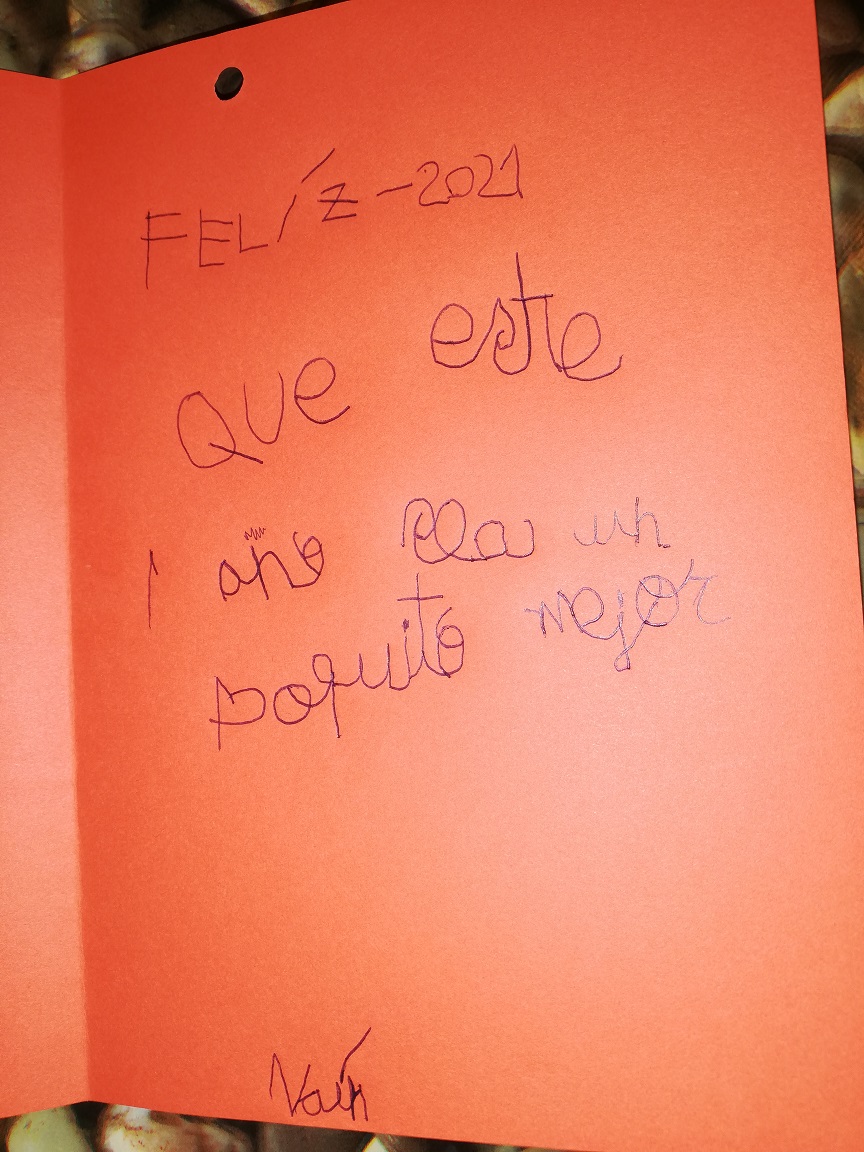 FELÍZ-2021
Que este
año sea un
poquito mejor